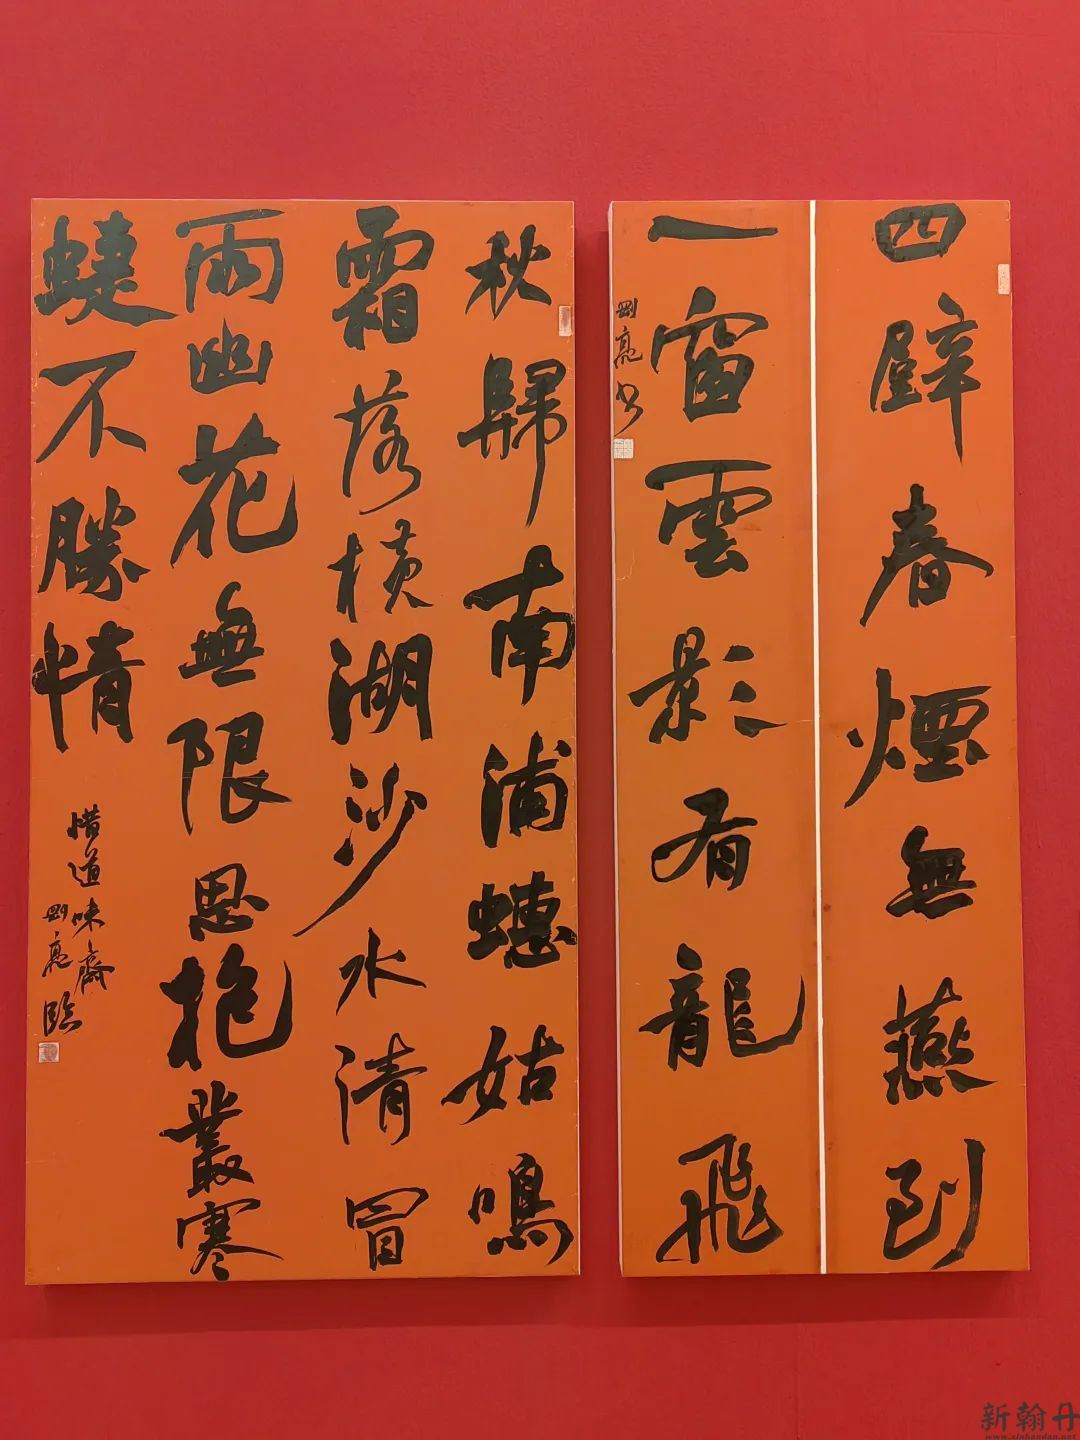 四壁春煙無燕到
一窗雲影有龍飛
剛亮书
秋歸南浦蟪姑鳴
霜落横湖沙水清冒
雨幽花無限思抱叢寒
蜨不勝情
惜道味齋
剛亮臨
新翰丹
www.xinhandan.net